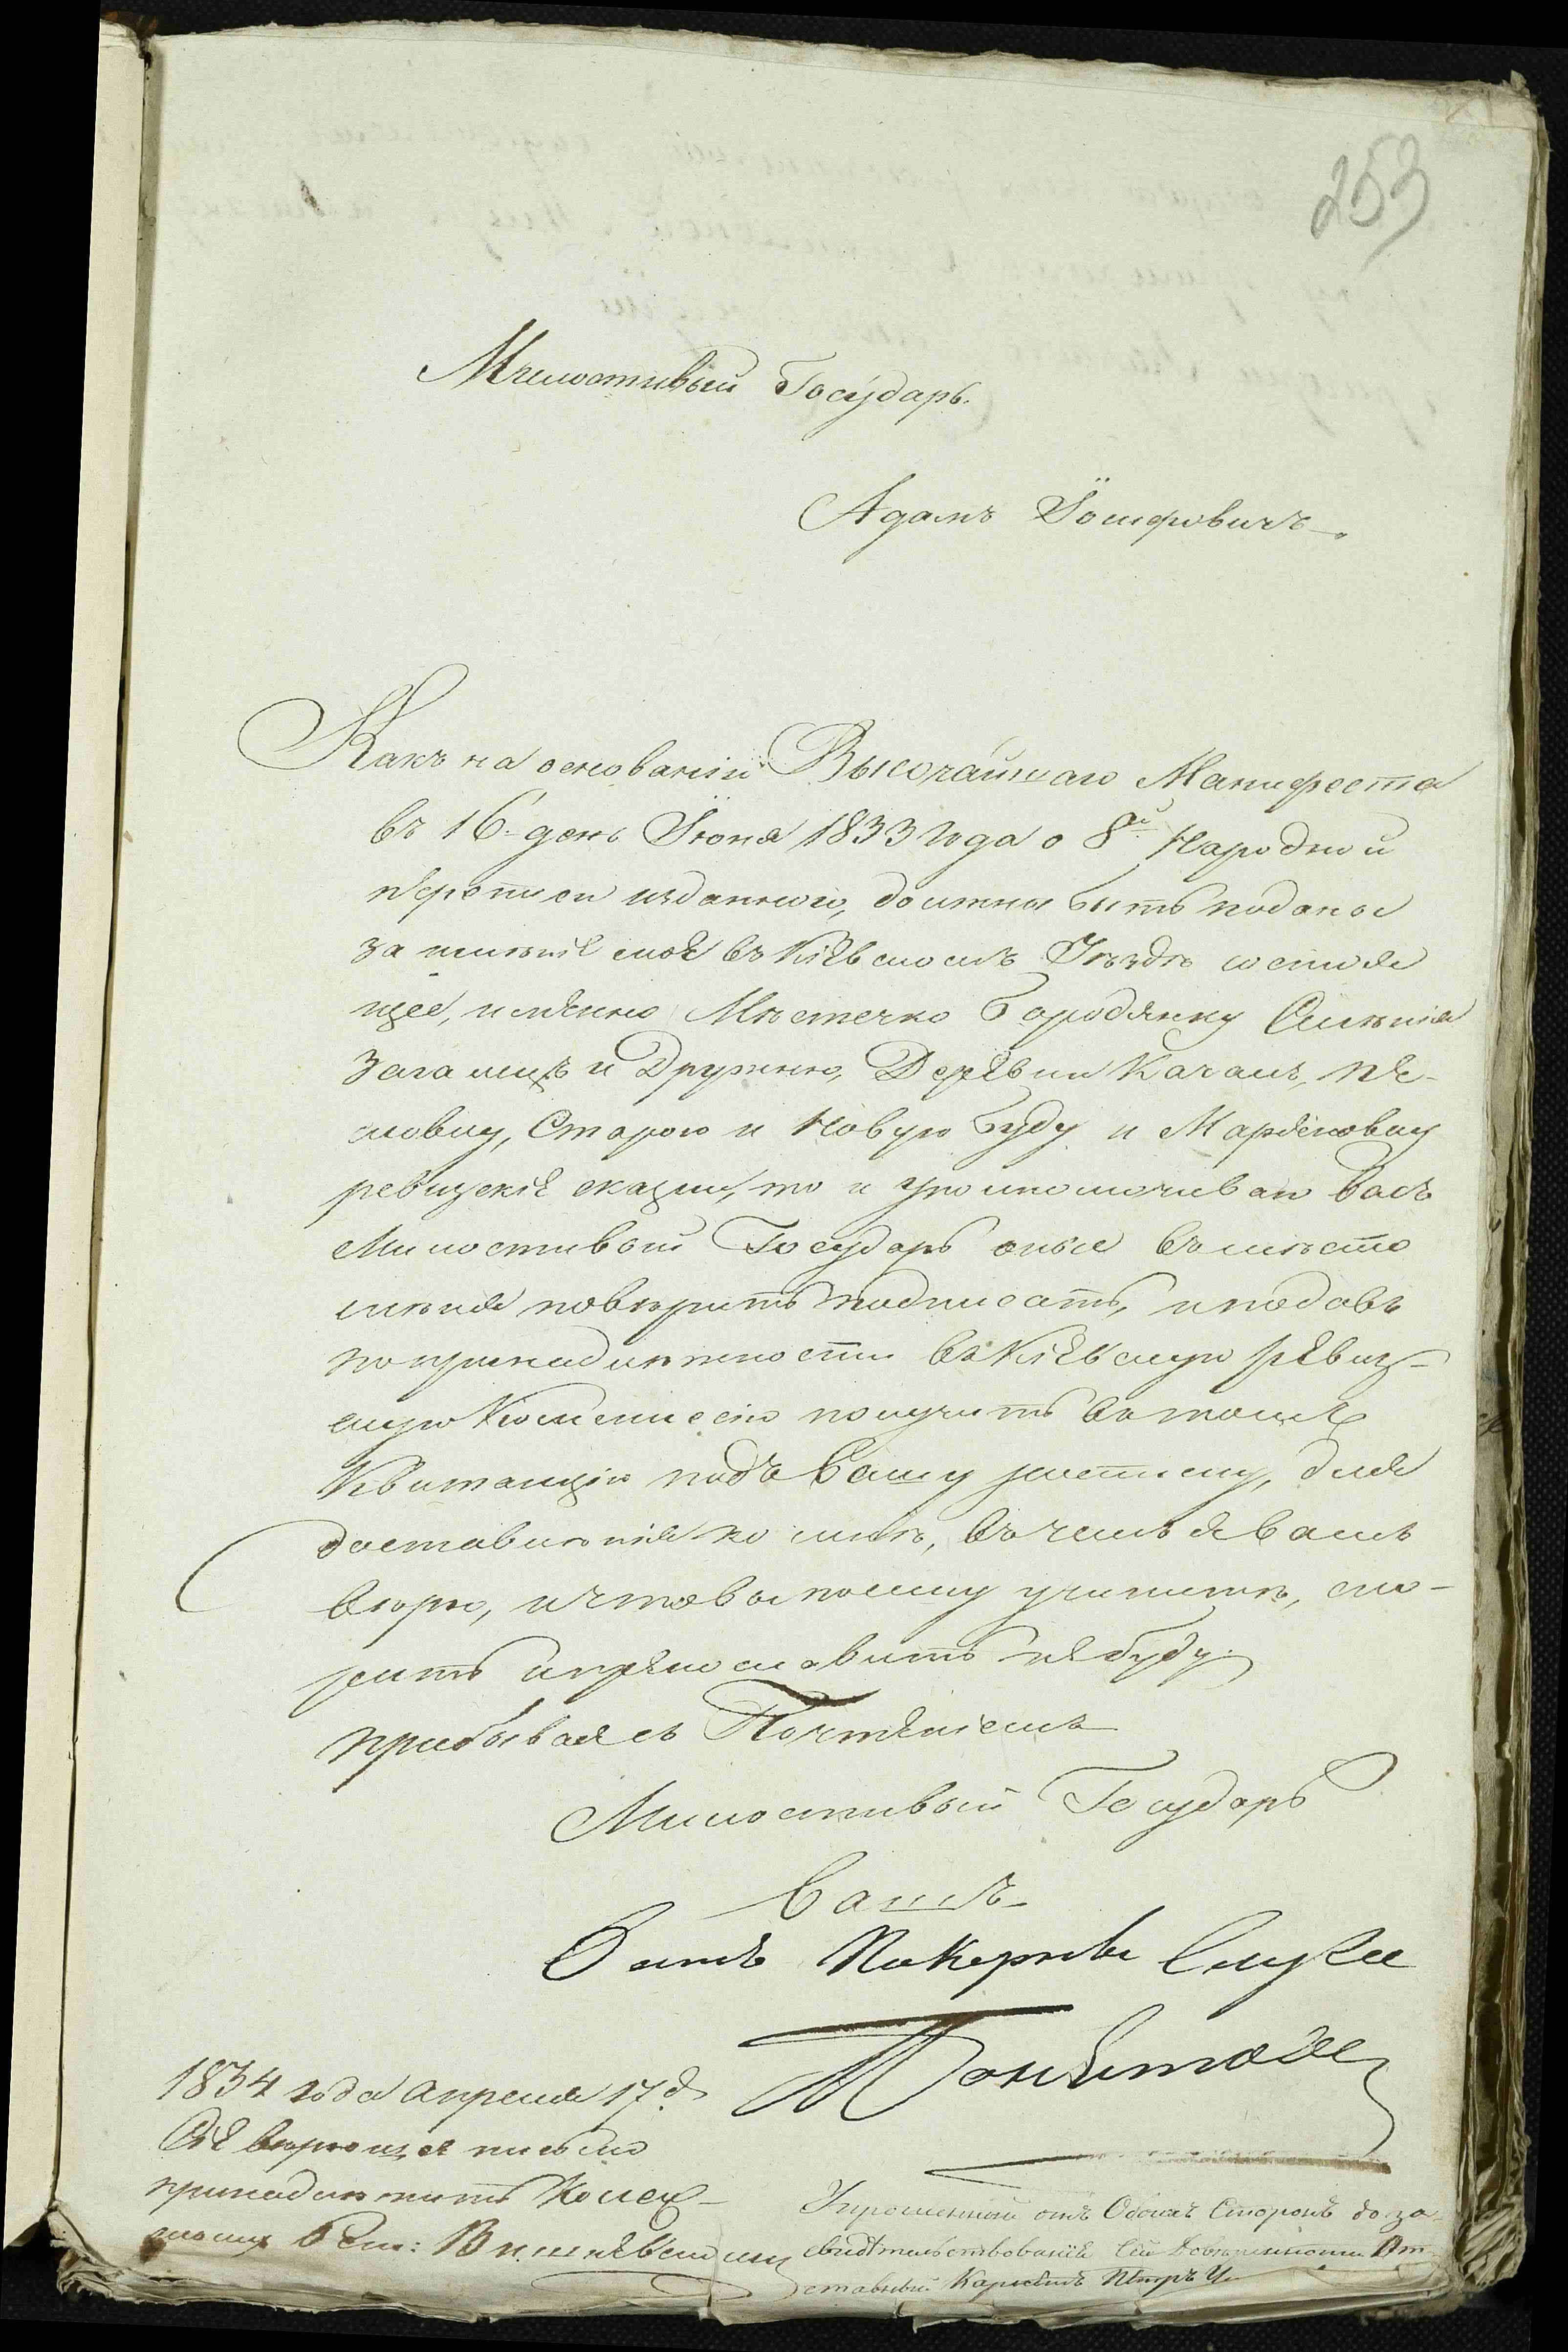 253
Милостивый Государь
Адамъ Іосифовичъ.
Какъ на основаніи Высочайшаго Манифеста
въ 16. день Іюня 1833 года о 8й Народной
переписи изданного, должны быть поданы
за имѣніе моѐ въ Кіевскомъ Уѣздѣ состоя
щее, имѣнно Мѣстечко Бородянку Селѣнія
Загальцъ и Дружню, Деревни Качалъ, Пе-
сковку, Старою и Новую Буду и
ревизскіе сказки, то и уполномочиваю васъ
Милостивый Государь оные въ мѣсто
мѣня повѣрить подписать, и подавъ
по принадлѣжности въ Кіевскую ревиз-
скую Коммиссію получить въ томъ
Квитанцію подъ Вашу росписку, для
доставлѣнія ко мнѣ, въ чемъ я вамъ
вѣрю, и что вы по сему учините, спо-
рить и прекословить не буду.
прибывая съ Почтеніемъ
Милостивый Государь
Вашъ
Покорный Слуга
1834 года апреля 17. д.
Сіе вѣрющее письмо
принадлѣжитъ
Вишневскому
Упрошенный отъ Обоихъ Сторонъ до за-
свидѣтельствованія Сей Довѣренности От
ставный